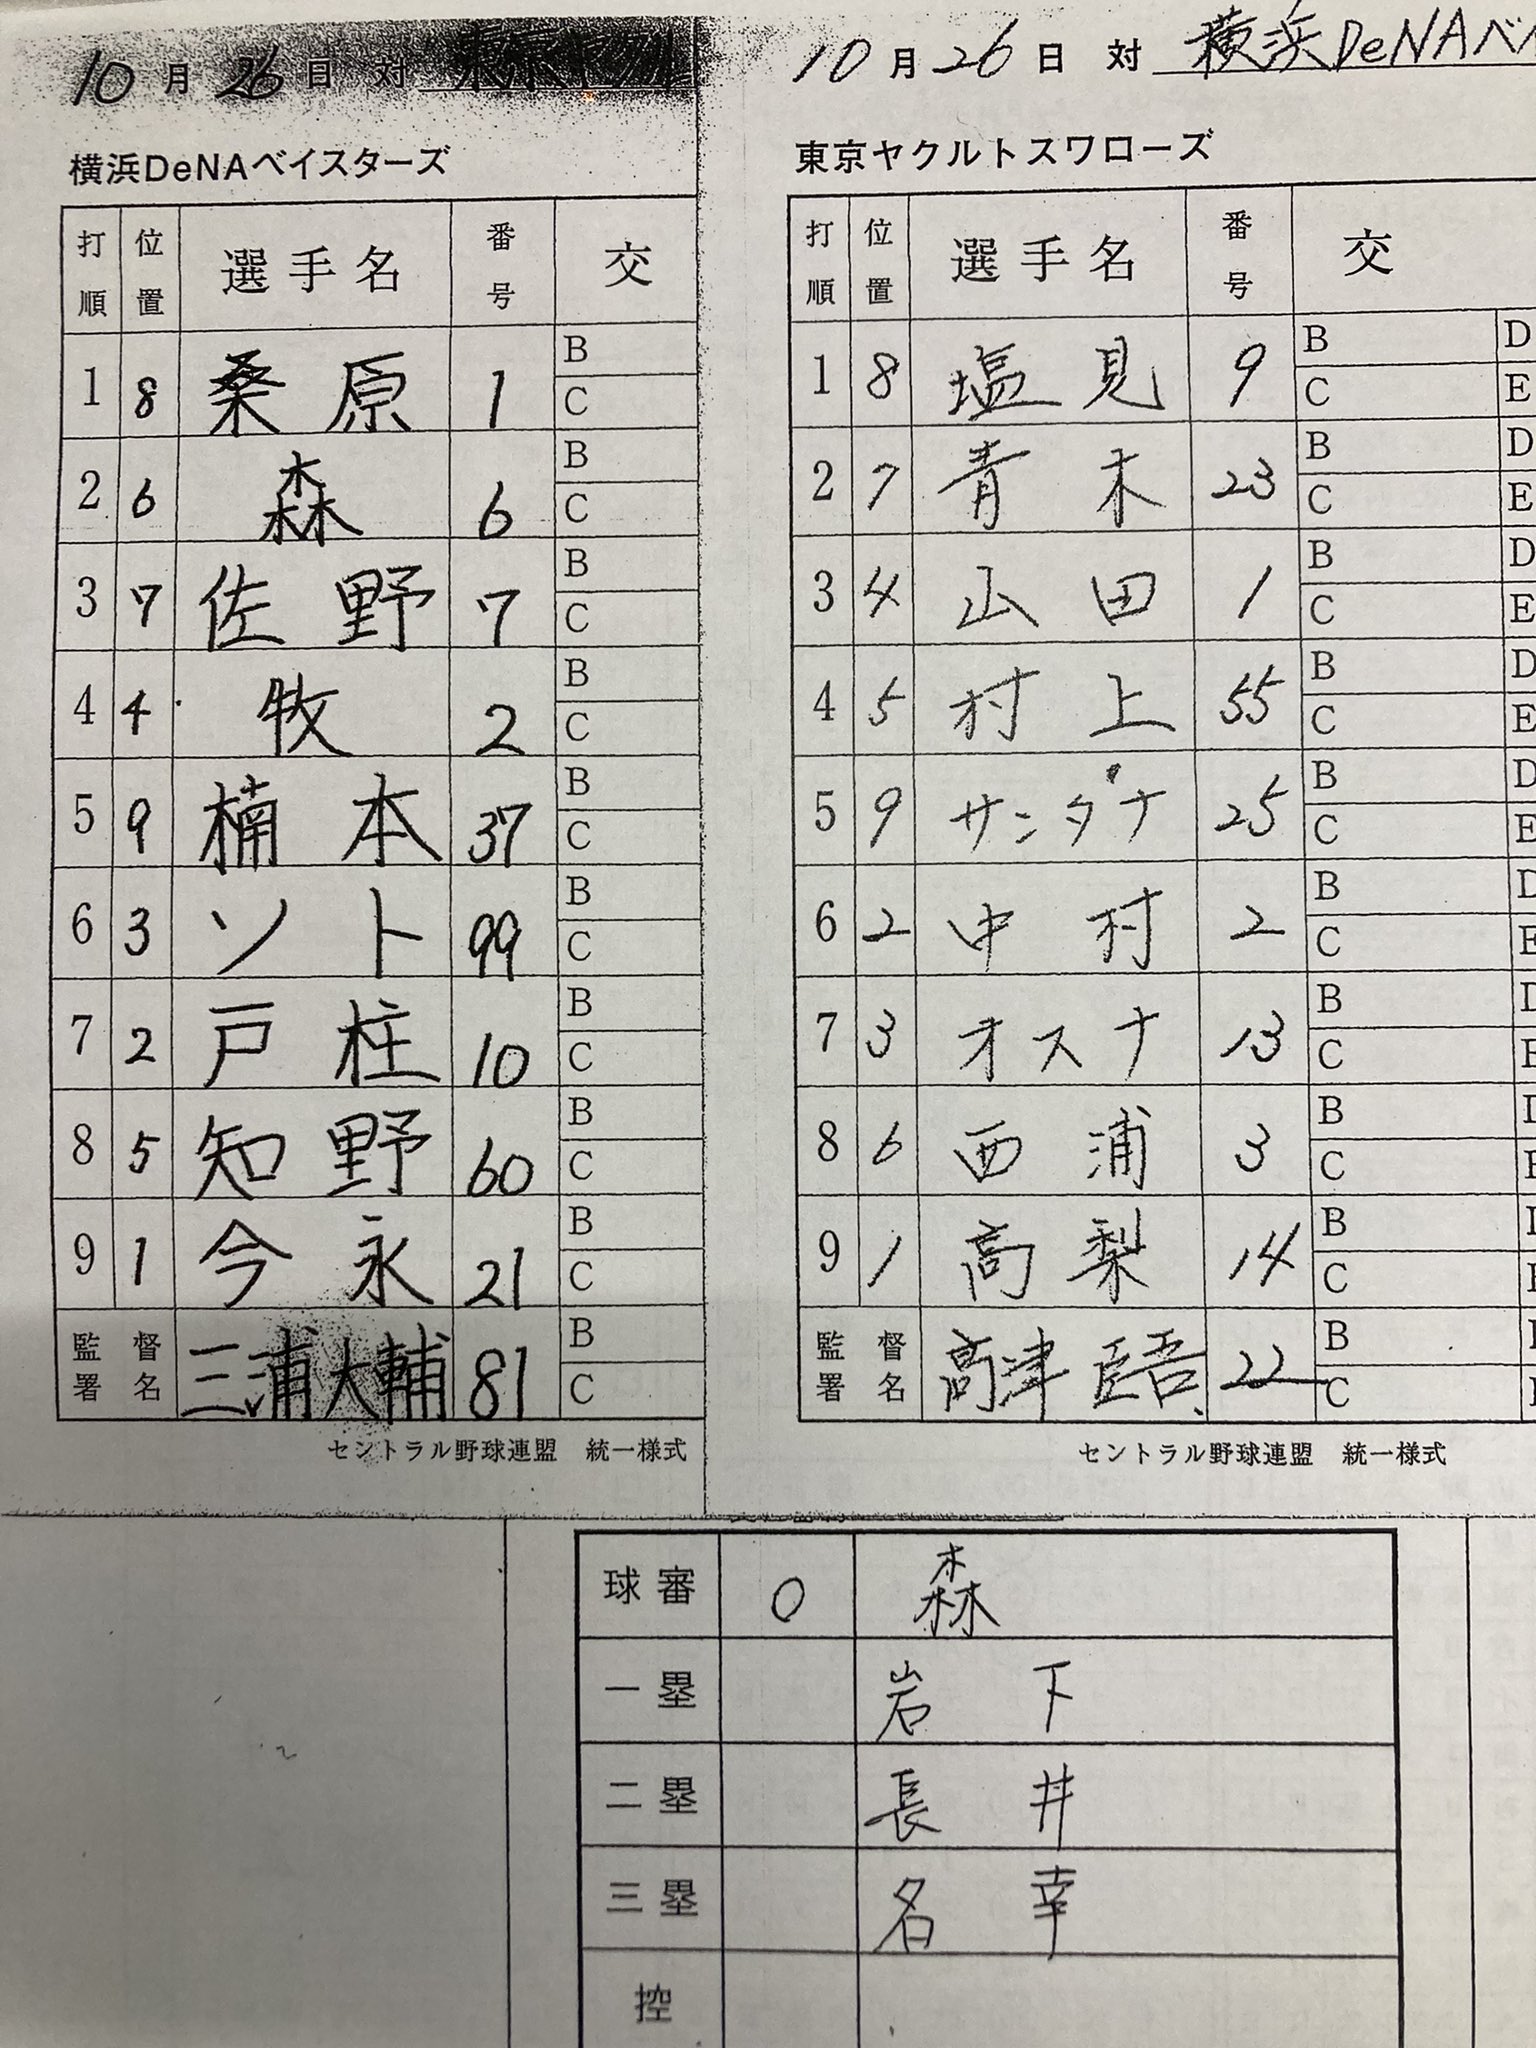 10月26日 対 東京ヤクルト
横浜DeNAベイスターズ
打順 位置 選手名 番号 交
1 8 桑原 1 B C
2 6 森 6 B C
3 7 佐野 7 B C
4 4 牧 2 B C
5 9 楠本 37 B C
6 3 ソト 99 B C
7 2 戸柱 10 B C
8 5 知野 60 B C
9 1 今永 21 B C
監督署名 三浦大輔 81 B C
セントラル野球連盟 統一様式
10月26日 対 横浜DeNAベイ
東京ヤクルトスワローズ
打順 位置 選手名 番号 交
1 8 塩見 9 B C D E
2 7 青木 23 B C D E
3 4 山田 1 B C D E
4 5 村上 55 B C D E
5 9 サンタナ 25 B C D E
6 2 中村 2 B C D E
7 3 オスナ 13 B C D E
8 6 西浦 3 B C D E
9 1 高梨 14 B C
監督署名 髙津臣吾 22 B C
セントラル野球連盟 統一様式
球審 0 森
一塁 岩下
二塁 長井
三塁 名幸
控